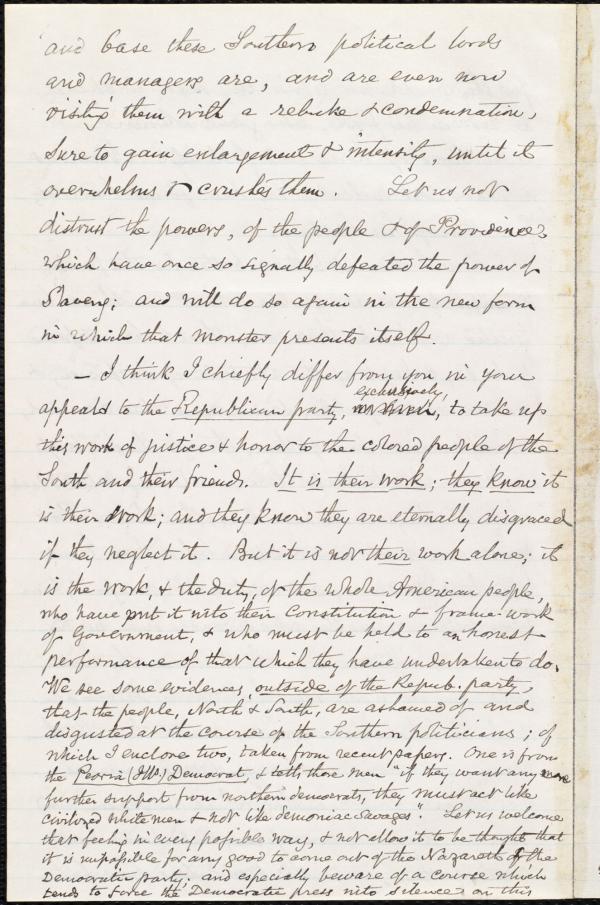 and base these Southern political lords
and managers are, and are even now
visiting them with a rebuke & condemnation,
sure to gain enlargement & intensity, until it
overwhelms & crushes them. Let us not
distrust the powers, of the people & of Providence,
which have once so signally defeated the power of
Slavery; and will do so again in the new form
in which that monster presents itself.
– I think I chiefly differ from you in your
exclusively,
appeals to the Republican party, to take up
this work of justice & honor to the colored people of the
South and their friends. It is their work; they know it
is their work; and they know they are eternally disgraced
if they neglect it. But it is not their work alone; it
is the work, & the duty, of the whole American people,
who have put it into their Constitution & frame-work
of Government, & who must be held to an honest
performance of that which they have undertaken to do.
We see some evidences, outside of the Repub. party,
that the people, North & South, are ashamed of and
disgusted at the course of the Southern politicians; of
which I enclose two, taken from recent papers. One is from
the Peoria (Ills.) Democrat, & tells those men "if they want any more
further support from northern democrats, they must act like
civilized white men & not like demoniac savages". Let us welcome
that feeling in every possible way, & not allow it to be thought that
it is impossible for any good to come out of the Nazareth of the
Democratic party; and especially beware of a course which
tends to force the Democratic press into silence on this